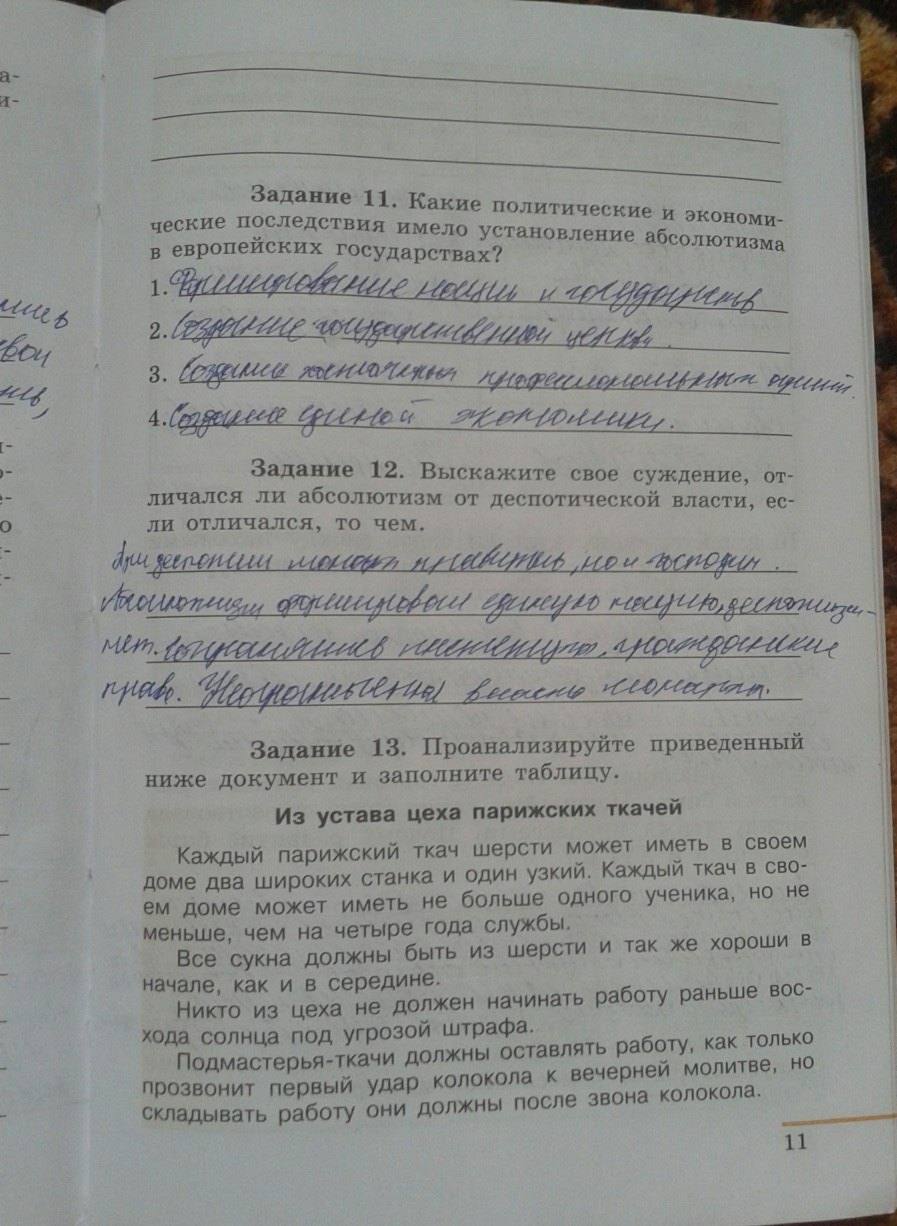 а-
и-
Задание 11. Какие политические и экономи-
ческие последствия имело установление абсолютизма
в европейских государствах?
1. Формирование нации и государств
2. Создание государственной церкви.
3. Создание постоянных профессиональных армий.
4. Создание единой экономики.
Задание 12. Выскажите свое суждение, от-
личался ли абсолютизм от деспотической власти, ес-
ли отличался, то чем.
При деспотии правитель, но и господин.
Абсолютизм формировал единую нацию, деспотизм-
нет. гражданские
прав. Неограниченная власть монарха.
Задание 13. Проанализируйте приведенный
ниже документ и заполните таблицу.
Из устава цеха парижских ткачей
Каждый парижский ткач шерсти может иметь в своем
доме два широких станка и один узкий. Каждый ткач в сво-
ем доме может иметь не больше одного ученика, но не
меньше, чем на четыре года службы.
Все сукна должны быть из шерсти и так же хороши в
начале, как и в середине.
Никто из цеха не должен начинать работу раньше вос-
хода солнца под угрозой штрафа.
Подмастерья-ткачи должны оставлять работу, как только
прозвонит первый удар колокола к вечерней молитве, но
складывать работу они должны после звона колокола.
11